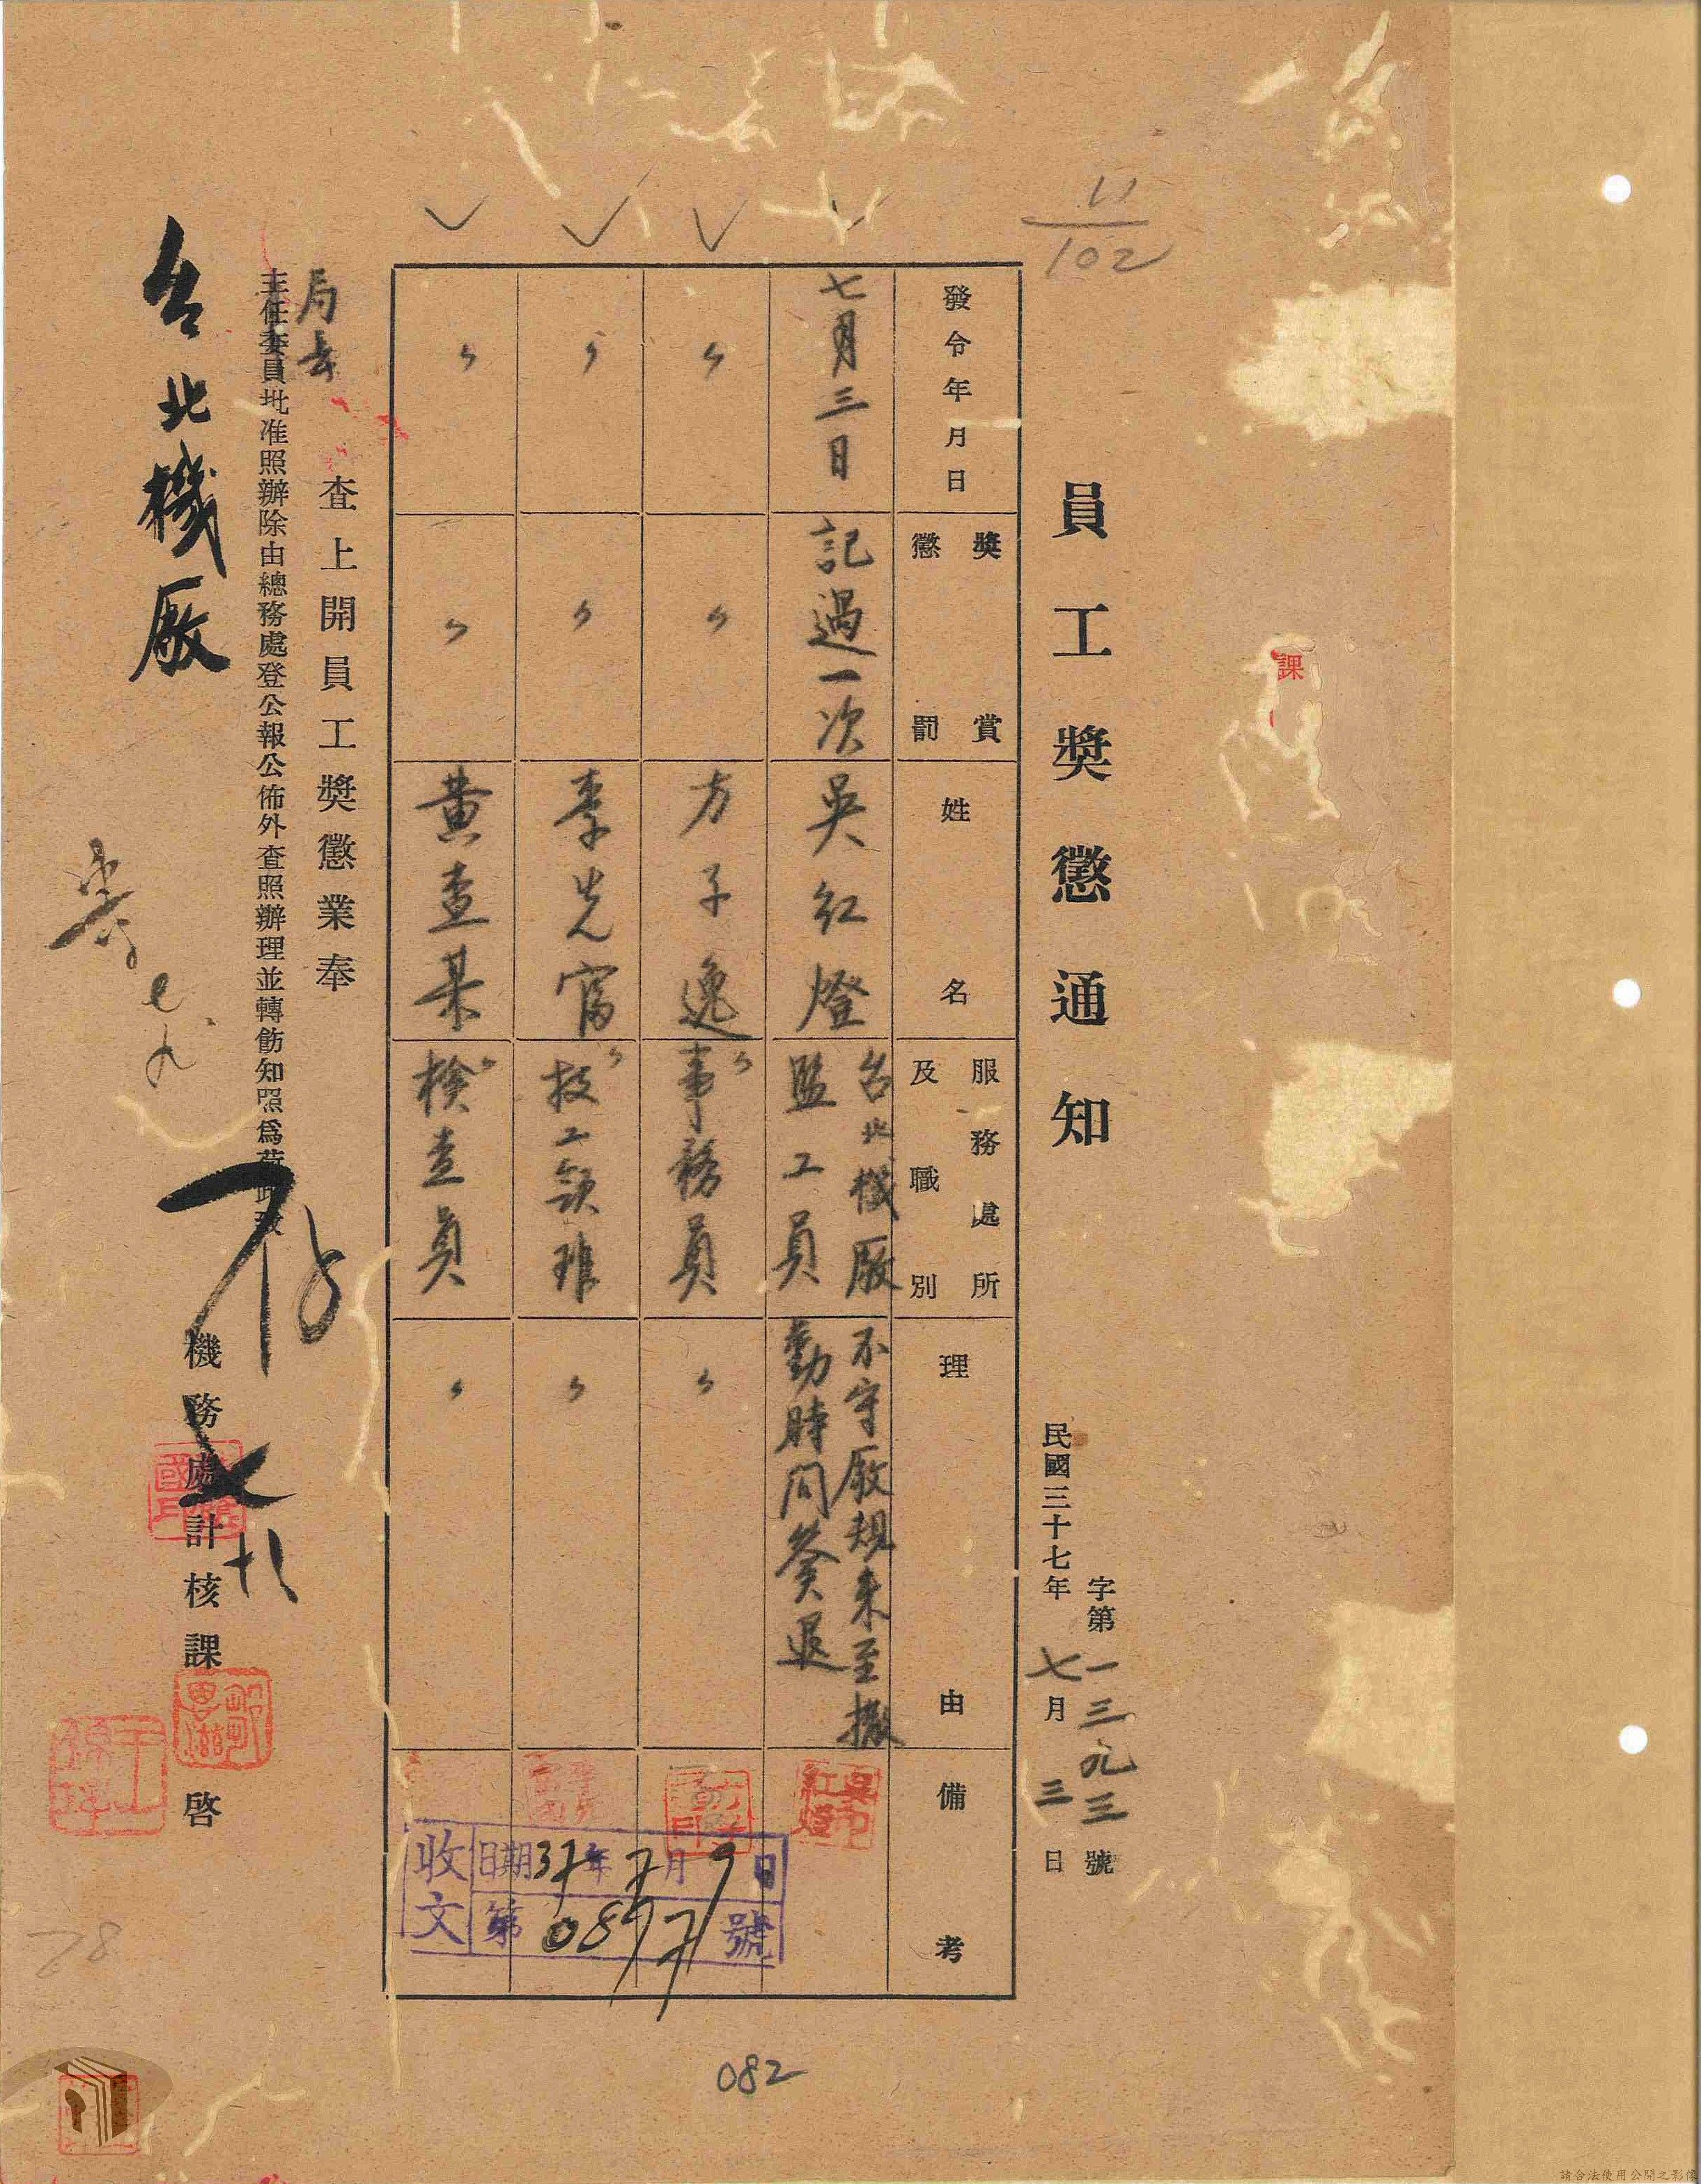 員工獎懲通知
字第一三九三號
民國三十七年七月三日
11/102
發令年月日
獎賞
懲罰
姓名
服務處所
及職別
理由
備考
七月三日
記過一次
吳紅燈
台北機厰
監工員
不守厰規未至撤
勤時間
退
〃
〃
方子逸
〃
事務員
〃
〃
〃
李先富
〃
技工領班
〃
〃
〃
黃查某
〃
檢查員
〃
收文
日期37年7月9日
第0897號
查上開員工獎懲業奉
局長
主任委員批准照辦除由總務處登公報公佈外查照辦理並轉飭知照爲荷此致
台北機厰
機務處計核課啓
存
課
78
082
請合法使用公開之影像